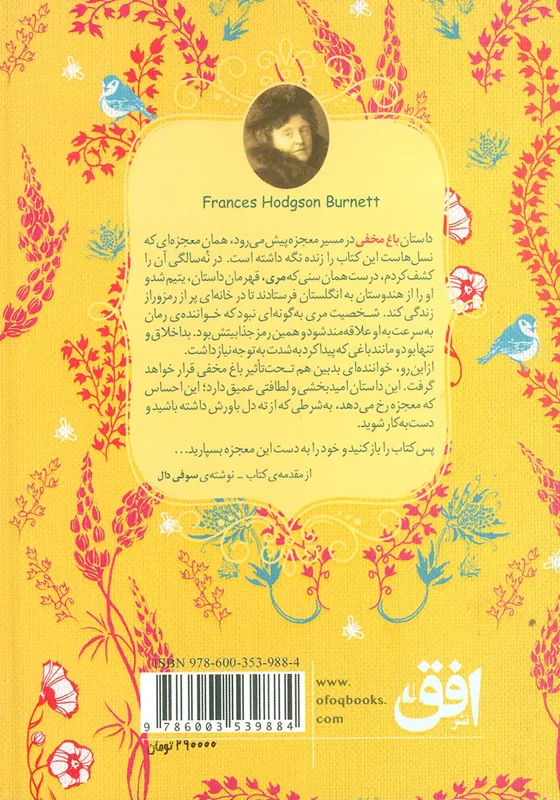 Frances Hodgson Burnett
داستان باغ مخفی در مسیر معجزه پیش می‌رود، همان معجزه‌ای که
نسل‌هاست این کتاب را زنده نگه داشته است. در نُه‌سالگی آن را
کشف کردم، درست همان سنی که مری، قهرمان داستان، یتیم شد و
او را از هندوستان به انگلستان فرستادند تا در خانه‌ای پر از رمزوراز
زندگی کند. شخصیت مری به‌گونه‌ای نبود که خواننده‌ی رمان
به‌سرعت به او علاقه‌مند شود و همین رمز جذابیتش بود. بداخلاق و
تنها بود و مانند باغی که پیدا کرد به‌شدت به توجه نیاز داشت.
ازاین‌رو، خواننده‌ای بدبین هم تحت‌تأثیر باغ مخفی قرار خواهد
گرفت. این داستان امیدبخشی و لطافتی عمیق دارد؛ این احساس
که معجزه رخ می‌دهد، به‌شرطی که از ته دل باورش داشته باشید و
دست‌به‌کار شوید.
پس کتاب را باز کنید و خود را به دست این معجزه بسپارید...
از مقدمه‌ی کتاب - نوشته‌ی سوفی دال
ISBN 978-600-353-988-4
9 786003 539884
۲۹۰۰۰۰ تومان
www.
ofoqbooks.
com
نشر
افق